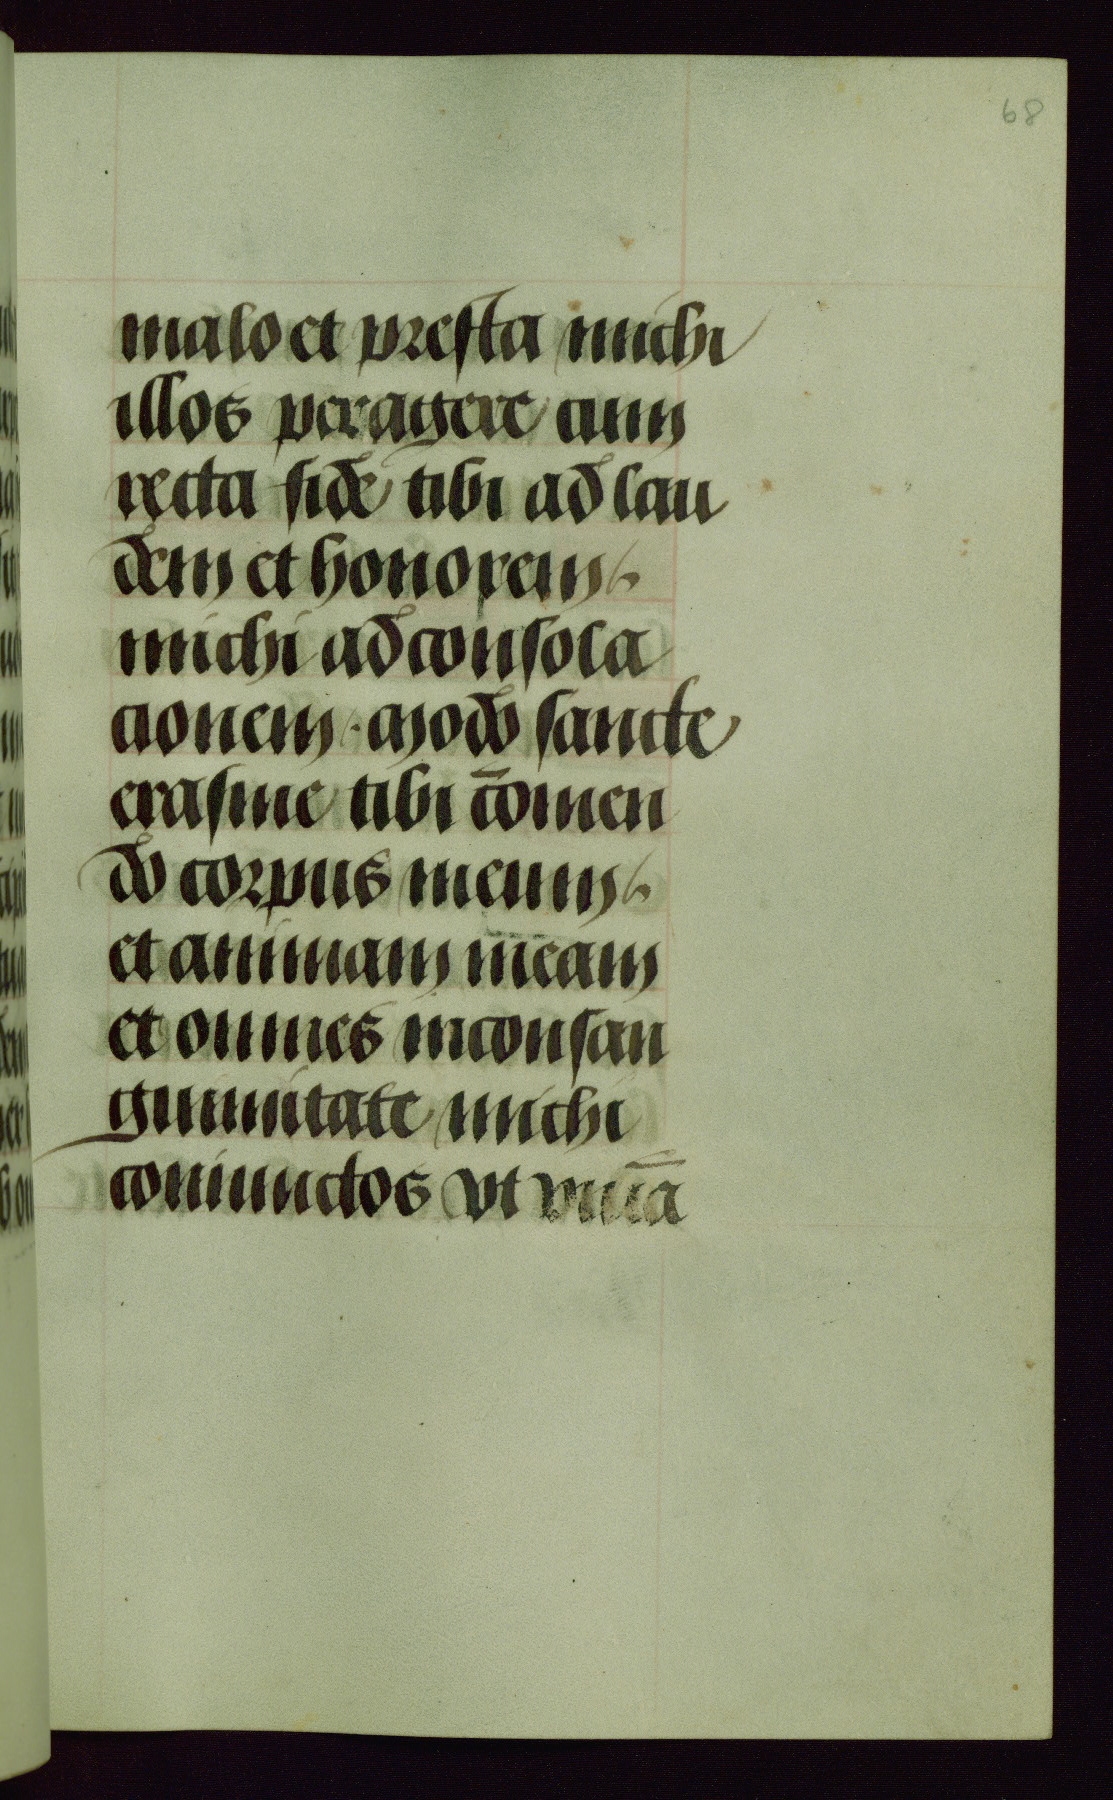 68
malo et presta michi
illos peragere cum
recta fide tibi ad lau
dem et honorem
michi ad consola
cionem · Modo sancte
erasme tibi cōmen
do corpus meum
et animam meam
et omnes inconsan
guinitate michi
coniunctos vt